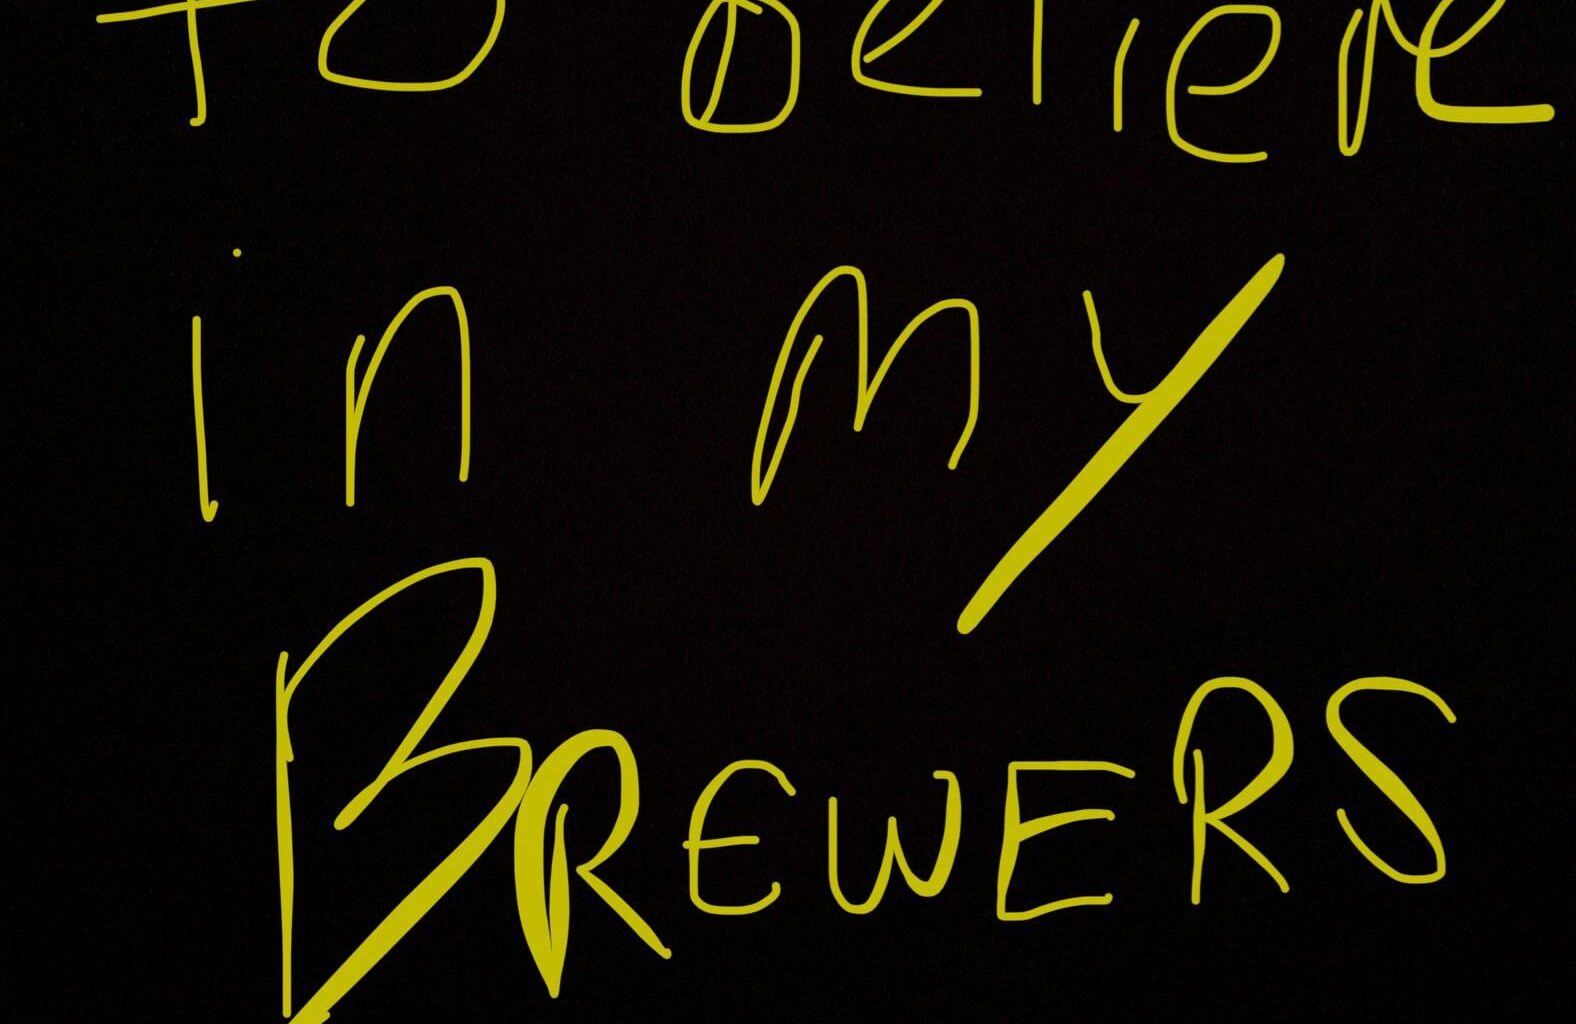 to believe
in my
BREWERS